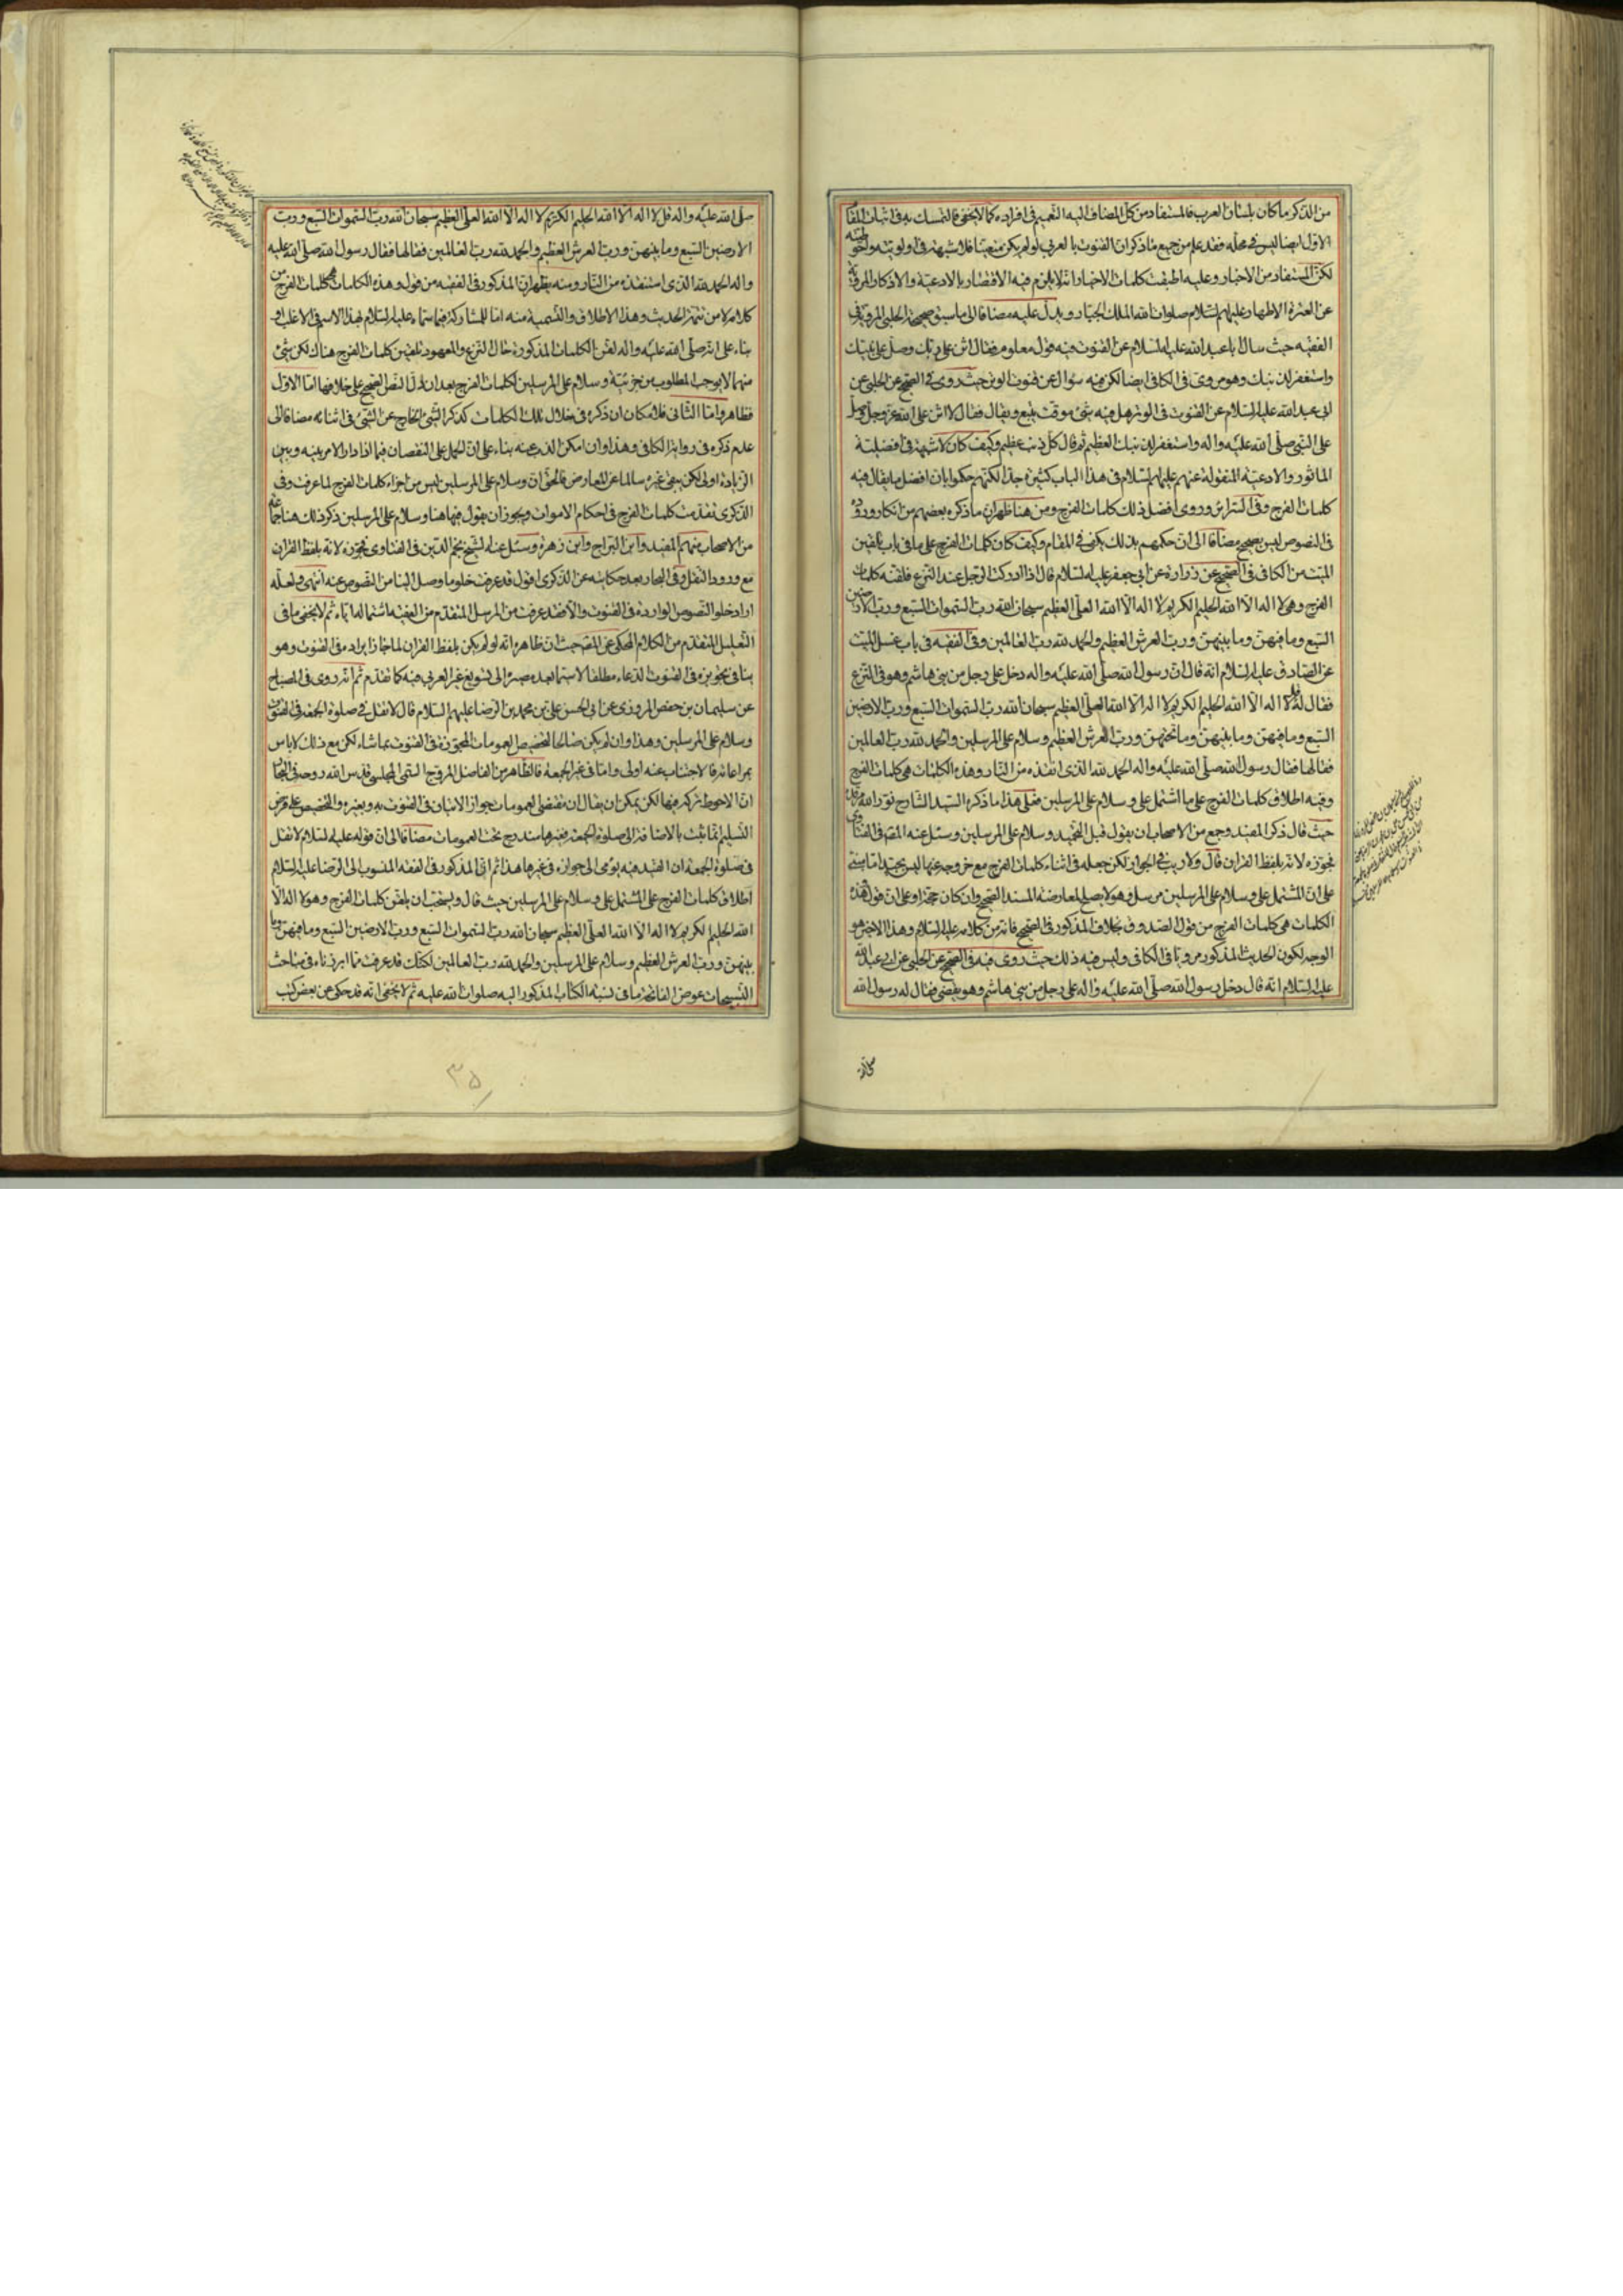 من الذكر ما كان بلسان العرب فالمستفاد من كل المضاف اليه التعميم فى افراده كما لا يخفى فالتمسك به فى اثبات
الاول ايضا ليس فى محله فقد علم من جميع ما ذكر ان القنوت بالعربى لو لم يكن متعينا فلا شبهة فى اولويته
لكن المستفاد من الاخبار وعليه اطبقت كلمات الاخيار انه لا يلزم فيه الاقتصار بالادعية والاذكار المروية
عن العترة الاطهار عليهم السلام صلوات الله الملك الجبار ويدل عليه مضافا الى ما سبق صحيحة الحلبى المروية فى
الفقيه حيث سال ابا عبد الله عليه السلام عن القنوت فيه قول معلوم فقال اثن على ربك وصل على نبيك
واستغفر لذنبك وهو مروى فى الكافى ايضا لكن فيه سؤال عن قنوت الوتر حيث روى فى الصحيح عن الحلبى عن
ابى عبد الله عليه السلام عن القنوت فى الوتر هل فيه شئ موقت يتبع ويقال فقال لا اثن على الله عز وجل وصل
على النبى صلى الله عليه واله واستغفر لذنبك العظيم ثم قال كل ذنب عظيم وكيف كان لا شبهة فى افضلية
الماثور والادعية المنقولة عنهم عليهم السلام فى هذا الباب كثيرة جدا لكنهم حكموا بان افضل ما يقال فيه
كلمات الفرج وفى السرائر وروى افضل ذلك كلمات الفرج ومن هنا ظهر ان ما ذكره بعضهم من انكار وروده
فى النصوص ليس بصحيح مضافا الى ان حكمهم بذلك يكفى فى المقام وكيف كان كلمات الفرج على ما فى باب تلقين
الميت من الكافى فى الصحيح عن زرارة عن ابى جعفر عليه السلام قال اذا ادركت الرجل عند النزع فلقنه كلمات
الفرج وهى لا اله الا الله الحليم الكريم لا اله الا الله العلى العظيم سبحان الله رب السموات السبع ورب الارضين
السبع وما فيهن وما بينهن ورب العرش العظيم والحمد لله رب العالمين وفى الفقيه فى باب غسل الميت
عن الصادق عليه السلام انه قال ان رسول الله صلى الله عليه واله دخل على رجل من بنى هاشم وهو فى النزع
فقال له قل لا اله الا الله الحليم الكريم لا اله الا الله العلى العظيم سبحان الله رب السموات السبع ورب الارضين
السبع وما فيهن وما بينهن وما تحتهن ورب العرش العظيم وسلام على المرسلين والحمد لله رب العالمين
فقالها فقال رسول الله صلى الله عليه واله الحمد لله الذى انقذه من النار وهذه الكلمات هى كلمات الفرج
وفيه اطلاق كلمات الفرج على ما اشتمل على وسلام على المرسلين هذا ما ذكره السيد الشارح نور الله مرقده
حيث قال ذكر المفيد وجمع من الاصحاب ان يقول قبل التحميد وسلام على المرسلين وسئل عنه المصنف فى الفتاوى
فجوزه لانه بلفظ القران قال ولا ريب فى الجواز لكن جعله فى اثناء كلمات الفرج مع خروجه عنها ليس بجيد
على ان المشتمل على وسلام على المرسلين مرسل وهو لا يصلح لمعارضة المسند الصحيح وان كان حجة او على ان قوله وهذه
الكلمات هى كلمات الفرج من قول الصدوق بخلاف المذكور فى الصحيح فانه من كلامه عليه السلام وهذا الاخير هو
الوجه لكون الحديث المذكور مرويا فى الكافى وليس فيه ذلك حيث روى فيه فى الصحيح عن الحلبى عن ابى عبد الله
عليه السلام انه قال دخل رسول الله صلى الله عليه واله على رجل من بنى هاشم وهو يقضى فقال له رسول الله
صلى الله عليه واله قل لا اله الا الله الحليم الكريم لا اله الا الله العلى العظيم سبحان الله رب السموات السبع ورب
الارضين السبع وما بينهن ورب العرش العظيم والحمد لله رب العالمين فقالها فقال رسول الله صلى الله عليه
واله الحمد لله الذى استنقذه من النار ومنه يظهر ان المذكور فى الفقيه من قوله وهذه الكلمات هى كلمات الفرج من
كلامه لا من تتمة الحديث وهذا الاطلاق والتسمية منه اما للمشاركة فيما سماه عليه السلام بهذا الاسم فى الاغلب او
بناء على انه صلى الله عليه واله لقن الكلمات المذكورة حال النزع والمعهود تلقين كلمات الفرج هناك لكن شئ
منهما لا يوجب المطلوب من جزئية وسلام على المرسلين لكلمات الفرج بعد ان دل النص الصحيح على خلافها اما الاول
فظاهر واما الثانى فلامكان ان ذكره فى خلال تلك الكلمات كذكر الشئ الخارج عن الشئ فى اثنائه مضافا الى
عدم ذكره فى رواية الكافى وهذا وان امكن الذب عنه بناء على ان الحمل على النقصان فيما اذا دار الامر بينه وبين
الزيادة اولى لكن يبقى غيره سالما عن المعارض فالحق ان وسلام على المرسلين ليس من اجزاء كلمات الفرج لما عرفت وفى
الذكرى تقدمت كلمات الفرج فى احكام الاموات ويجوز ان يقول فيها هنا وسلام على المرسلين ذكر ذلك هنا جماعة
من الاصحاب منهم المفيد وابن البراج وابن زهرة وسئل عنه الشيخ نجم الدين فى الفتاوى فجوزه لانه بلفظ القران
مع ورود النقل وفى البحار بعد حكايته عن الذكرى اقول قد عرفت خلو ما وصل الينا من النصوص عنه انتهى ولعله
اراد خلو النصوص الواردة فى القنوت والا فقد عرفت من المرسل المتقدم من الفقيه اشتماله اياه ثم لا يخفى ما فى
التعليل المتقدم من الكلام المحكى عن المصنف حيث ان ظاهره انه لو لم يكن بلفظ القران لما جاز ايراده فى القنوت وهو
ينافى تجويزه فى القنوت الدعاء مطلقا لا سيما بعد مصيره الى تسويغ غير العربى فيه كما تقدم ثم انه روى فى المصباح
عن سليمان بن حفص المروزى عن ابى الحسن على بن محمد بن الرضا عليهم السلام قال لا تقل فى صلوة الجمعة فى القنوت
وسلام على المرسلين وهذا وان لم يكن صالحا لتخصيص العمومات المجوزة فى القنوت بما شاء لكن مع ذلك لا باس
بمراعاته فالاجتناب عنه اولى واما فى غير الجمعة فالظاهر من الفاضل المروج التقى المجلسى قدس الله روحه فى البحار
ان الاحوط تركه فيها لكن يمكن ان يقال ان مقتضى العمومات جواز الاتيان فى القنوت به وبغيره والتخصيص على فرض
التسليم انما يثبت بالاضافة الى صلوة الجمعة فغيرها مندرج تحت العمومات مضافا الى ان قوله عليه السلام لا تقل
فى صلوة الجمعة ان القيد فيه يؤمى الى جوازه فى غيرها هذا ثم ان المذكور فى الفقه المنسوب الى الرضا عليه السلام
اطلاق كلمات الفرج على المشتمل على وسلام على المرسلين حيث قال ويستحب ان يلقن كلمات الفرج وهو لا اله الا
الله الحليم الكريم لا اله الا الله العلى العظيم سبحان الله رب السموات السبع ورب الارضين السبع وما فيهن وما
بينهن ورب العرش العظيم وسلام على المرسلين والحمد لله رب العالمين لكنك قد عرفت مما ابرزناه فى مباحث
التسبيحات عوض الفاتحة ما فى نسبة الكتاب المذكور اليه صلوات الله عليه ثم لا يخفى انه قد حكى عن بعض كتب
۳۵